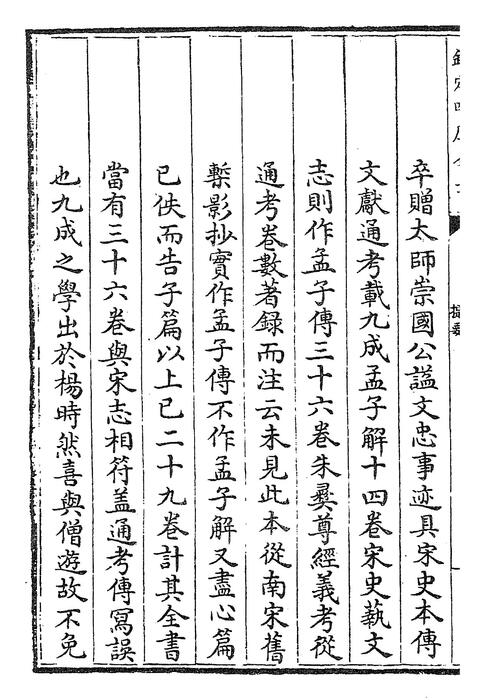 欽定四庫全書
提要
卒贈太師崇國公諡文忠事迹具宋史本傳
文獻通考載九成孟子解十四卷宋史藝文
志則作孟子傳三十六卷朱彛尊經義考從
通考卷數著録而注云未見此本從南宋舊
槧影抄實作孟子傳不作孟子解又盡心篇
已佚而告子篇以上已二十九卷計其全書
當有三十六卷與宋志相符盖通考傳寫誤
也九成之學出於楊時然喜與僧遊故不免